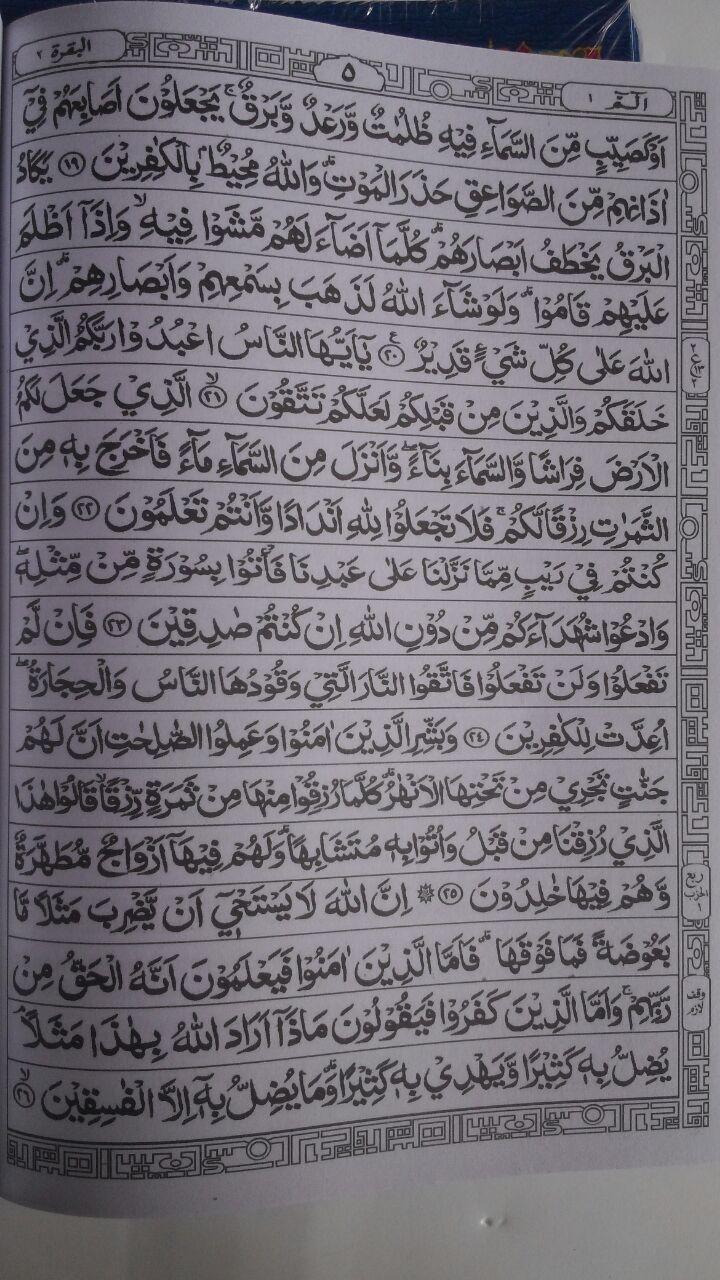 الـمّ ١
٥
البقرة ٢
اَوْكَصَيِّبٍ مِّنَ السَّمَآءِ فِيْهِ ظُلُمٰتٌ وَّرَعْدٌ وَّبَرْقٌ ۚ يَجْعَلُوْنَ اَصَابِعَهُمْ فِيْٓ
اٰذَانِهِمْ مِّنَ الصَّوَاعِقِ حَذَرَ الْمَوْتِ ۗ وَاللّٰهُ مُحِيْطٌ ۢ بِالْكٰفِرِيْنَ ﴿١٩﴾ يَكَادُ
الْبَرْقُ يَخْطَفُ اَبْصَارَهُمْ ۗ كُلَّمَآ اَضَآءَ لَهُمْ مَّشَوْا فِيْهِ ۙ وَاِذَآ اَظْلَمَ
عَلَيْهِمْ قَامُوْا ۗ وَلَوْ شَآءَ اللّٰهُ لَذَهَبَ بِسَمْعِهِمْ وَاَبْصَارِهِمْ ۗ اِنَّ
اللّٰهَ عَلٰى كُلِّ شَيْءٍ قَدِيْرٌ ﴿٢٠﴾ ع يٰٓاَيُّهَا النَّاسُ اعْبُدُوْا رَبَّكُمُ الَّذِيْ
خَلَقَكُمْ وَالَّذِيْنَ مِنْ قَبْلِكُمْ لَعَلَّكُمْ تَتَّقُوْنَ ﴿٢١﴾ ۙ الَّذِيْ جَعَلَ لَكُمُ
الْاَرْضَ فِرَاشًا وَّالسَّمَآءَ بِنَآءً ۖ وَّاَنْزَلَ مِنَ السَّمَآءِ مَآءً فَاَخْرَجَ بِهٖ مِنَ
الثَّمَرٰتِ رِزْقًا لَّكُمْ ۚ فَلَا تَجْعَلُوْا لِلّٰهِ اَنْدَادًا وَّاَنْتُمْ تَعْلَمُوْنَ ﴿٢٢﴾ وَاِنْ
كُنْتُمْ فِيْ رَيْبٍ مِّمَّا نَزَّلْنَا عَلٰى عَبْدِنَا فَأْتُوْا بِسُوْرَةٍ مِّنْ مِّثْلِهٖ ۖ
وَادْعُوْا شُهَدَآءَكُمْ مِّنْ دُوْنِ اللّٰهِ اِنْ كُنْتُمْ صٰدِقِيْنَ ﴿٢٣﴾ فَاِنْ لَّمْ
تَفْعَلُوْا وَلَنْ تَفْعَلُوْا فَاتَّقُوا النَّارَ الَّتِيْ وَقُوْدُهَا النَّاسُ وَالْحِجَارَةُ ۖ
اُعِدَّتْ لِلْكٰفِرِيْنَ ﴿٢٤﴾ وَبَشِّرِ الَّذِيْنَ اٰمَنُوْا وَعَمِلُوا الصّٰلِحٰتِ اَنَّ لَهُمْ
جَنّٰتٍ تَجْرِيْ مِنْ تَحْتِهَا الْاَنْهٰرُ ۗ كُلَّمَا رُزِقُوْا مِنْهَا مِنْ ثَمَرَةٍ رِّزْقًا ۙ قَالُوْا هٰذَا
الَّذِيْ رُزِقْنَا مِنْ قَبْلُ وَاُتُوْا بِهٖ مُتَشَابِهًا ۗ وَلَهُمْ فِيْهَآ اَزْوَاجٌ مُّطَهَّرَةٌ
وَّهُمْ فِيْهَا خٰلِدُوْنَ ﴿٢٥﴾ ۞ اِنَّ اللّٰهَ لَا يَسْتَحْيٖٓ اَنْ يَّضْرِبَ مَثَلًا مَّا
بَعُوْضَةً فَمَا فَوْقَهَا ۗ فَاَمَّا الَّذِيْنَ اٰمَنُوْا فَيَعْلَمُوْنَ اَنَّهُ الْحَقُّ مِنْ
رَّبِّهِمْ ۚ وَاَمَّا الَّذِيْنَ كَفَرُوْا فَيَقُوْلُوْنَ مَاذَآ اَرَادَ اللّٰهُ بِهٰذَا مَثَلًا ۘ
يُضِلُّ بِهٖ كَثِيْرًا وَّيَهْدِيْ بِهٖ كَثِيْرًا ۗ وَّمَا يُضِلُّ بِهٖٓ اِلَّا الْفٰسِقِيْنَ ﴿٢٦﴾ ۙ
ربع
الحزب
وقف
لازم